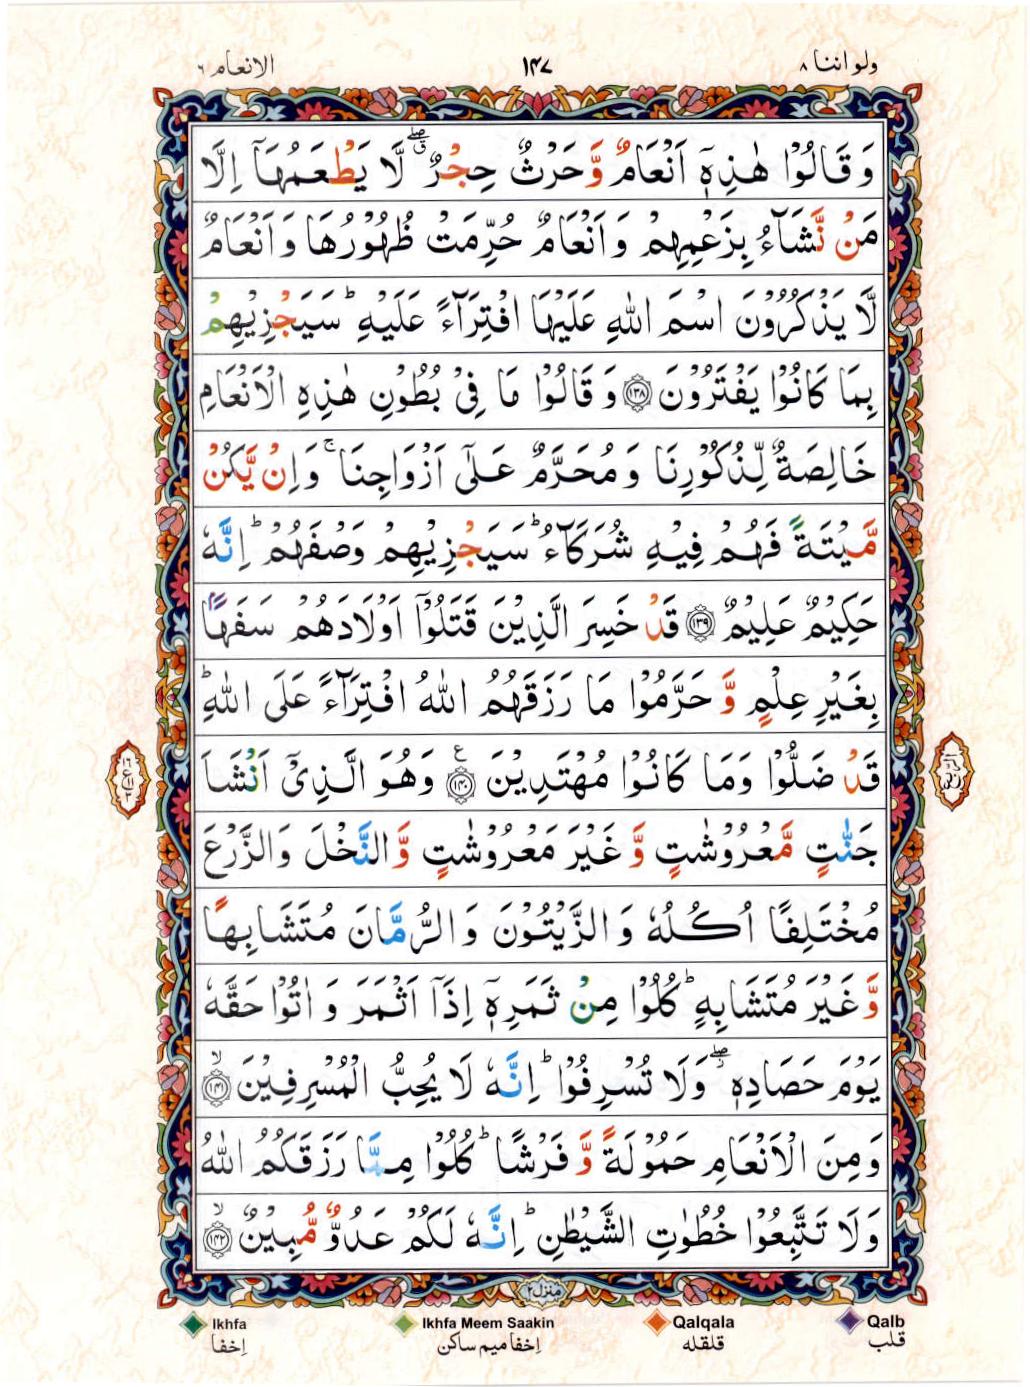 ولو اننا ۸
۱۴۷
الانعام ۶
وَقَالُوْا هٰذِهٖۤ اَنْعَامٌ وَّحَرْثٌ حِجْرٌ ۖۗ لَّا يَطْعَمُهَاۤ اِلَّا
مَنْ نَّشَآءُ بِزَعْمِهِمْ وَاَنْعَامٌ حُرِّمَتْ ظُهُوْرُهَا وَاَنْعَامٌ
لَّا يَذْكُرُوْنَ اسْمَ اللّٰهِ عَلَيْهَا افْتِرَآءً عَلَيْهِ ؕ سَيَجْزِيْهِمْ
بِمَا كَانُوْا يَفْتَرُوْنَ ۝۱۳۸ وَقَالُوْا مَا فِىْ بُطُوْنِ هٰذِهِ الْاَنْعَامِ
خَالِصَةٌ لِّذُكُوْرِنَا وَمُحَرَّمٌ عَلٰٓى اَزْوَاجِنَا ۚ وَاِنْ يَّكُنْ
مَّيْتَةً فَهُمْ فِيْهِ شُرَكَآءُ ؕ سَيَجْزِيْهِمْ وَصْفَهُمْ ؕ اِنَّهٗ
حَكِيْمٌ عَلِيْمٌ ۝۱۳۹ قَدْ خَسِرَ الَّذِيْنَ قَتَلُوْۤا اَوْلَادَهُمْ سَفَهًۢا
بِغَيْرِ عِلْمٍ وَّحَرَّمُوْا مَا رَزَقَهُمُ اللّٰهُ افْتِرَآءً عَلَى اللّٰهِ ؕ
قَدْ ضَلُّوْا وَمَا كَانُوْا مُهْتَدِيْنَ ۝۱۴۰ ع وَهُوَ الَّذِىْۤ اَنْشَاَ
جَنّٰتٍ مَّعْرُوْشٰتٍ وَّغَيْرَ مَعْرُوْشٰتٍ وَّالنَّخْلَ وَالزَّرْعَ
مُخْتَلِفًا اُكُلُهٗ وَالزَّيْتُوْنَ وَالرُّمَّانَ مُتَشَابِهًا
وَّغَيْرَ مُتَشَابِهٍ ؕ كُلُوْا مِنْ ثَمَرِهٖۤ اِذَاۤ اَثْمَرَ وَاٰتُوْا حَقَّهٗ
يَوْمَ حَصَادِهٖ ۖ وَلَا تُسْرِفُوْا ؕ اِنَّهٗ لَا يُحِبُّ الْمُسْرِفِيْنَ ۙ۝۱۴۱
وَمِنَ الْاَنْعَامِ حَمُوْلَةً وَّفَرْشًا ؕ كُلُوْا مِمَّا رَزَقَكُمُ اللّٰهُ
وَلَا تَتَّبِعُوْا خُطُوٰتِ الشَّيْطٰنِ ؕ اِنَّهٗ لَكُمْ عَدُوٌّ مُّبِيْنٌ ۙ۝۱۴۲
منزل ۲
Ikhfa
Ikhfa Meem Saakin
Qalqala
Qalb
اِخفا
اِخفا میم ساکن
قلقله
قلب